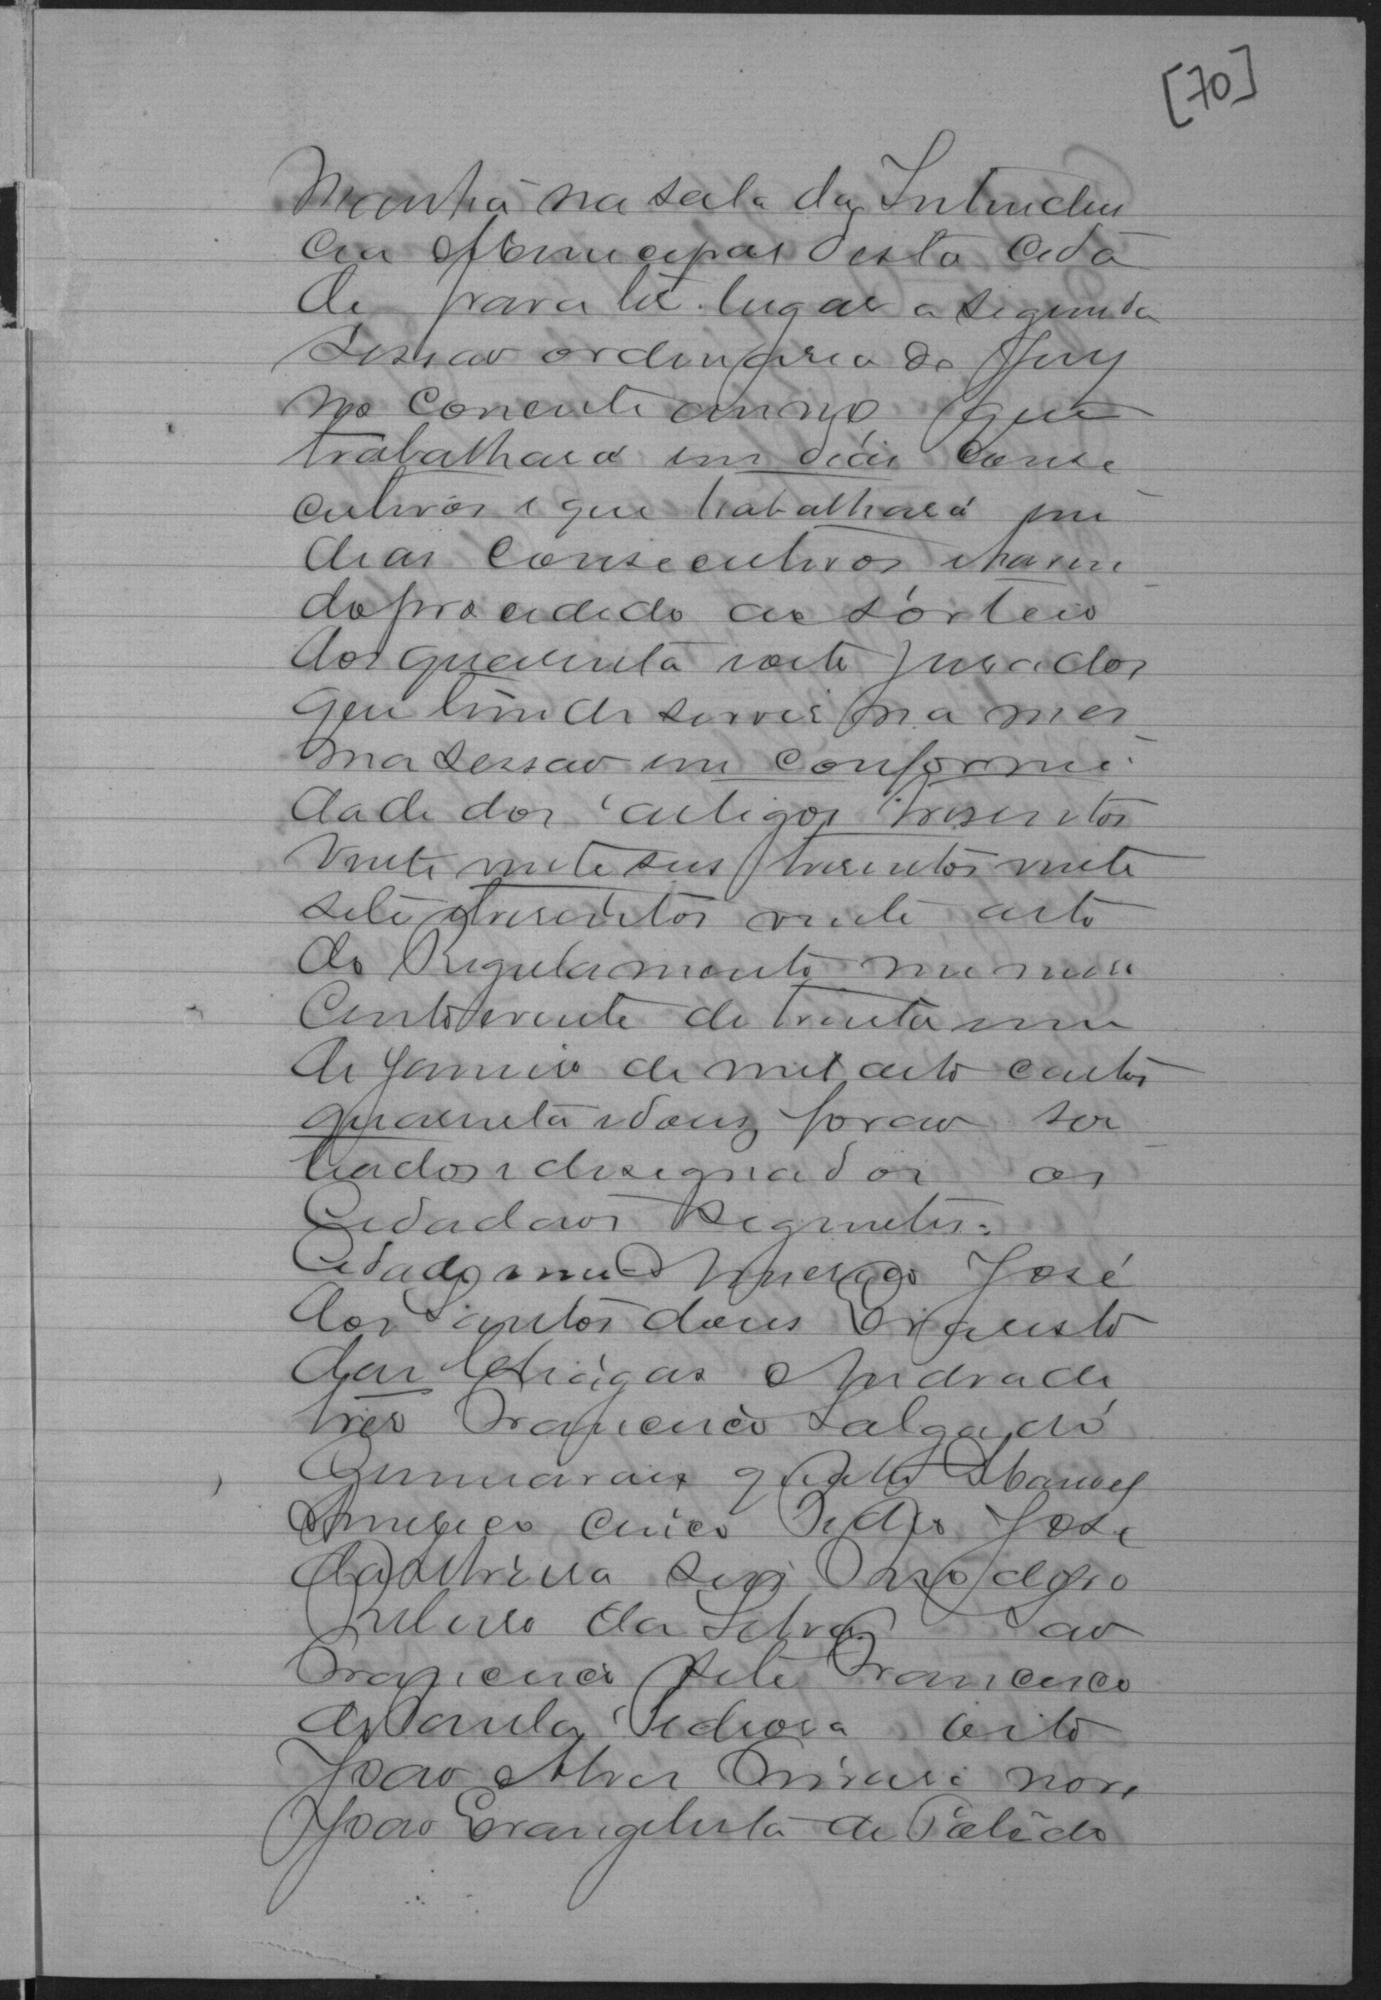 [70]
Manhã na sala da Intenden
cia Municipal desta Cida
de para ter lugar a segunda
Sessao ordinaria do Jury
no corrente anno, que
trabalhará em dias conse
cutivos e que trabalhará em
dias consecutivos e haven
do procedido ao sorteio
dos quarenta e oito Jurados
que tem de servir na mes
ma sessao em conformi
dade dos artigos tresentos
vinte seis tresentos vinte
sete e tresentos vinte oito
do Regulamento numero
Cento e vinte de trinta e um
de Janeiro de mil oito centos
quarenta e dous, forao sor
teados e designados os
Cidadaos seguintes:
Cidade um Americo José
dos Santos dous Ernesto
das Chagas Andrade
tres Francisco Salgado
Guimaraes quatro Manoel
Americo cinco Pedro José
da Oliveira seis
Ribeiro da Silva Sao
Francisco sete Francisco
de Paula Pedrosa oito
Joao Alves nove
Joao Evangelista de Toledo